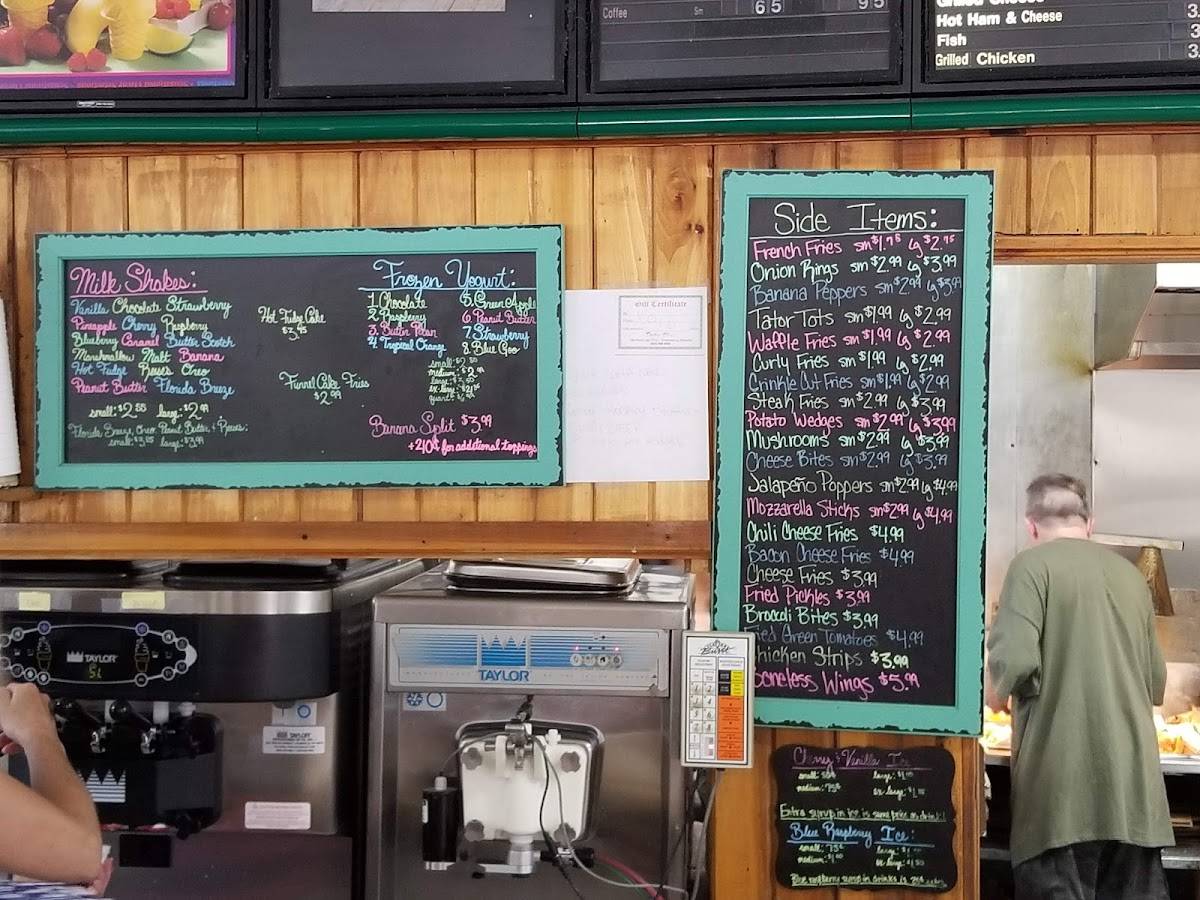 Coffee Sm 65 95
Grilled Cheese
Hot Ham & Cheese 3.
Fish 3.
Grilled Chicken 3.
Milk Shakes:
Vanilla Chocolate Strawberry
Pineapple Cherry Raspberry
Blueberry Caramel Butter Scotch
Marshmallow Malt Banana
Hot Fudge Reese's Oreo
Peanut Butter Florida Breeze
small: $2.55 large: $2.99
Florida Breeze, Oreo, Peanut Butter, & Reeses:
small: $3.25 large: $3.99
Hot Fudge Cake
Funnel Cake Fries
$2.99
Frozen Yogurt:
1. Chocolate
2. Raspberry
3. Butter Pecan
4. Tropical Orange
5. Green Apple
6. Peanut Butter
7. Strawberry
8. Blue Goo
small:
medium:
large:
ex-large:
quart:
Banana Split $3.99
+40¢ for additional toppings
Gift Certificate
Side Items:
French Fries sm $1.75 lg $2.75
Onion Rings sm $2.99 lg $3.99
Banana Peppers sm $2.99 lg $3.99
Tator Tots sm $1.99 lg $2.99
Waffle Fries sm $1.99 lg $2.99
Curly Fries sm $1.99 lg $2.99
Crinkle Cut Fries sm $1.99 lg $2.99
Steak Fries sm $2.99 lg $3.99
Potato Wedges sm $2.99 lg $3.99
Mushrooms sm $2.99 lg $3.99
Cheese Bites sm $2.99 lg $3.99
Jalapeño Poppers sm $2.99 lg $4.99
Mozzarella Sticks sm $2.99 lg $4.99
Chili Cheese Fries $4.99
Bacon Cheese Fries $4.99
Cheese Fries $3.99
Fried Pickles $3.99
Broccoli Bites $3.99
Fried Green Tomatoes $4.99
Chicken Strips $3.99
Boneless Wings $5.99
TAYLOR
TAYLOR
Burst
Cherry & Vanilla Ice
small: 55¢ large: $1.00
medium: 75¢ ex-large:
Extra syrup in ice is same price as drink!
Blue Raspberry Ice:
small: 75¢ large:
medium: $1.00 ex-large: $1.50
Blue raspberry syrup in drinks is 25¢ extra